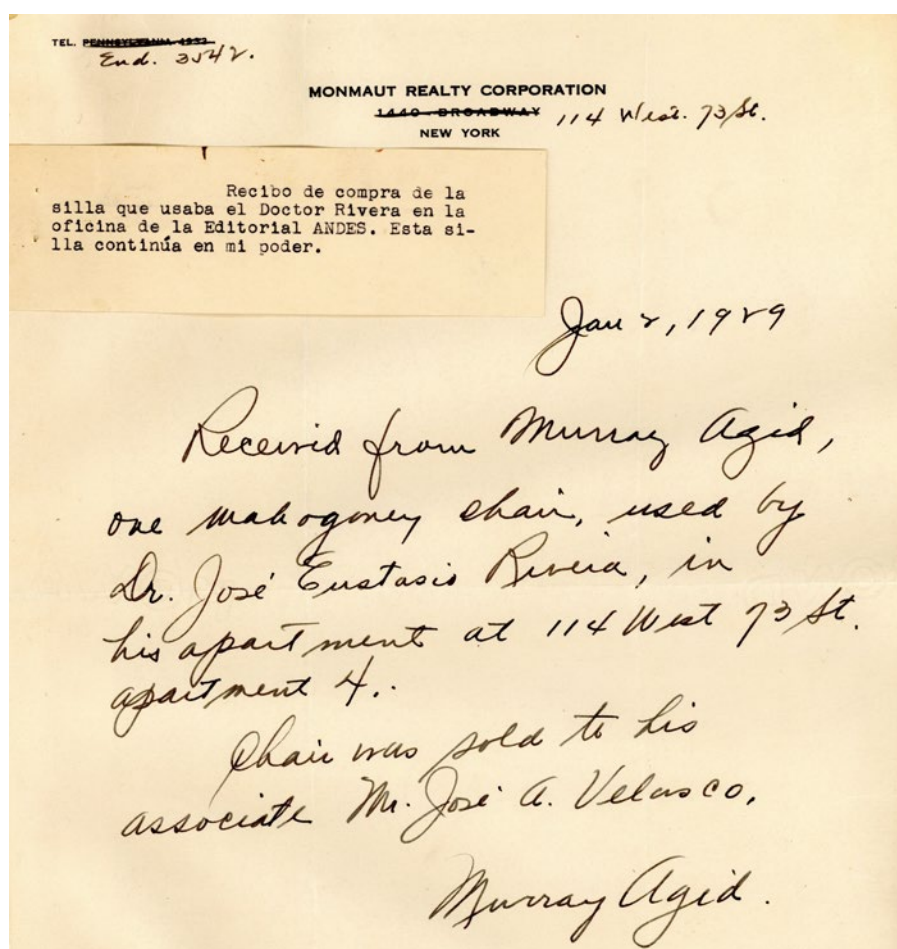 TEL. PENNSYLVANIA 4932
End. 3542.
MONMAUT REALTY CORPORATION
1440 BROADWAY 114 West. 73 St.
NEW YORK
Recibo de compra de la
silla que usaba el Doctor Rivera en la
oficina de la Editorial ANDES. Esta si-
lla continúa en mi poder.
Jan 2, 1929
Received from Murray Agid,
one mahogoney chair, used by
Dr. José Eustasio Rivera, in
his apartment at 114 West 73 St.
apartment 4.
Chair was sold to his
associate Mr. José A. Velasco.
Murray Agid.